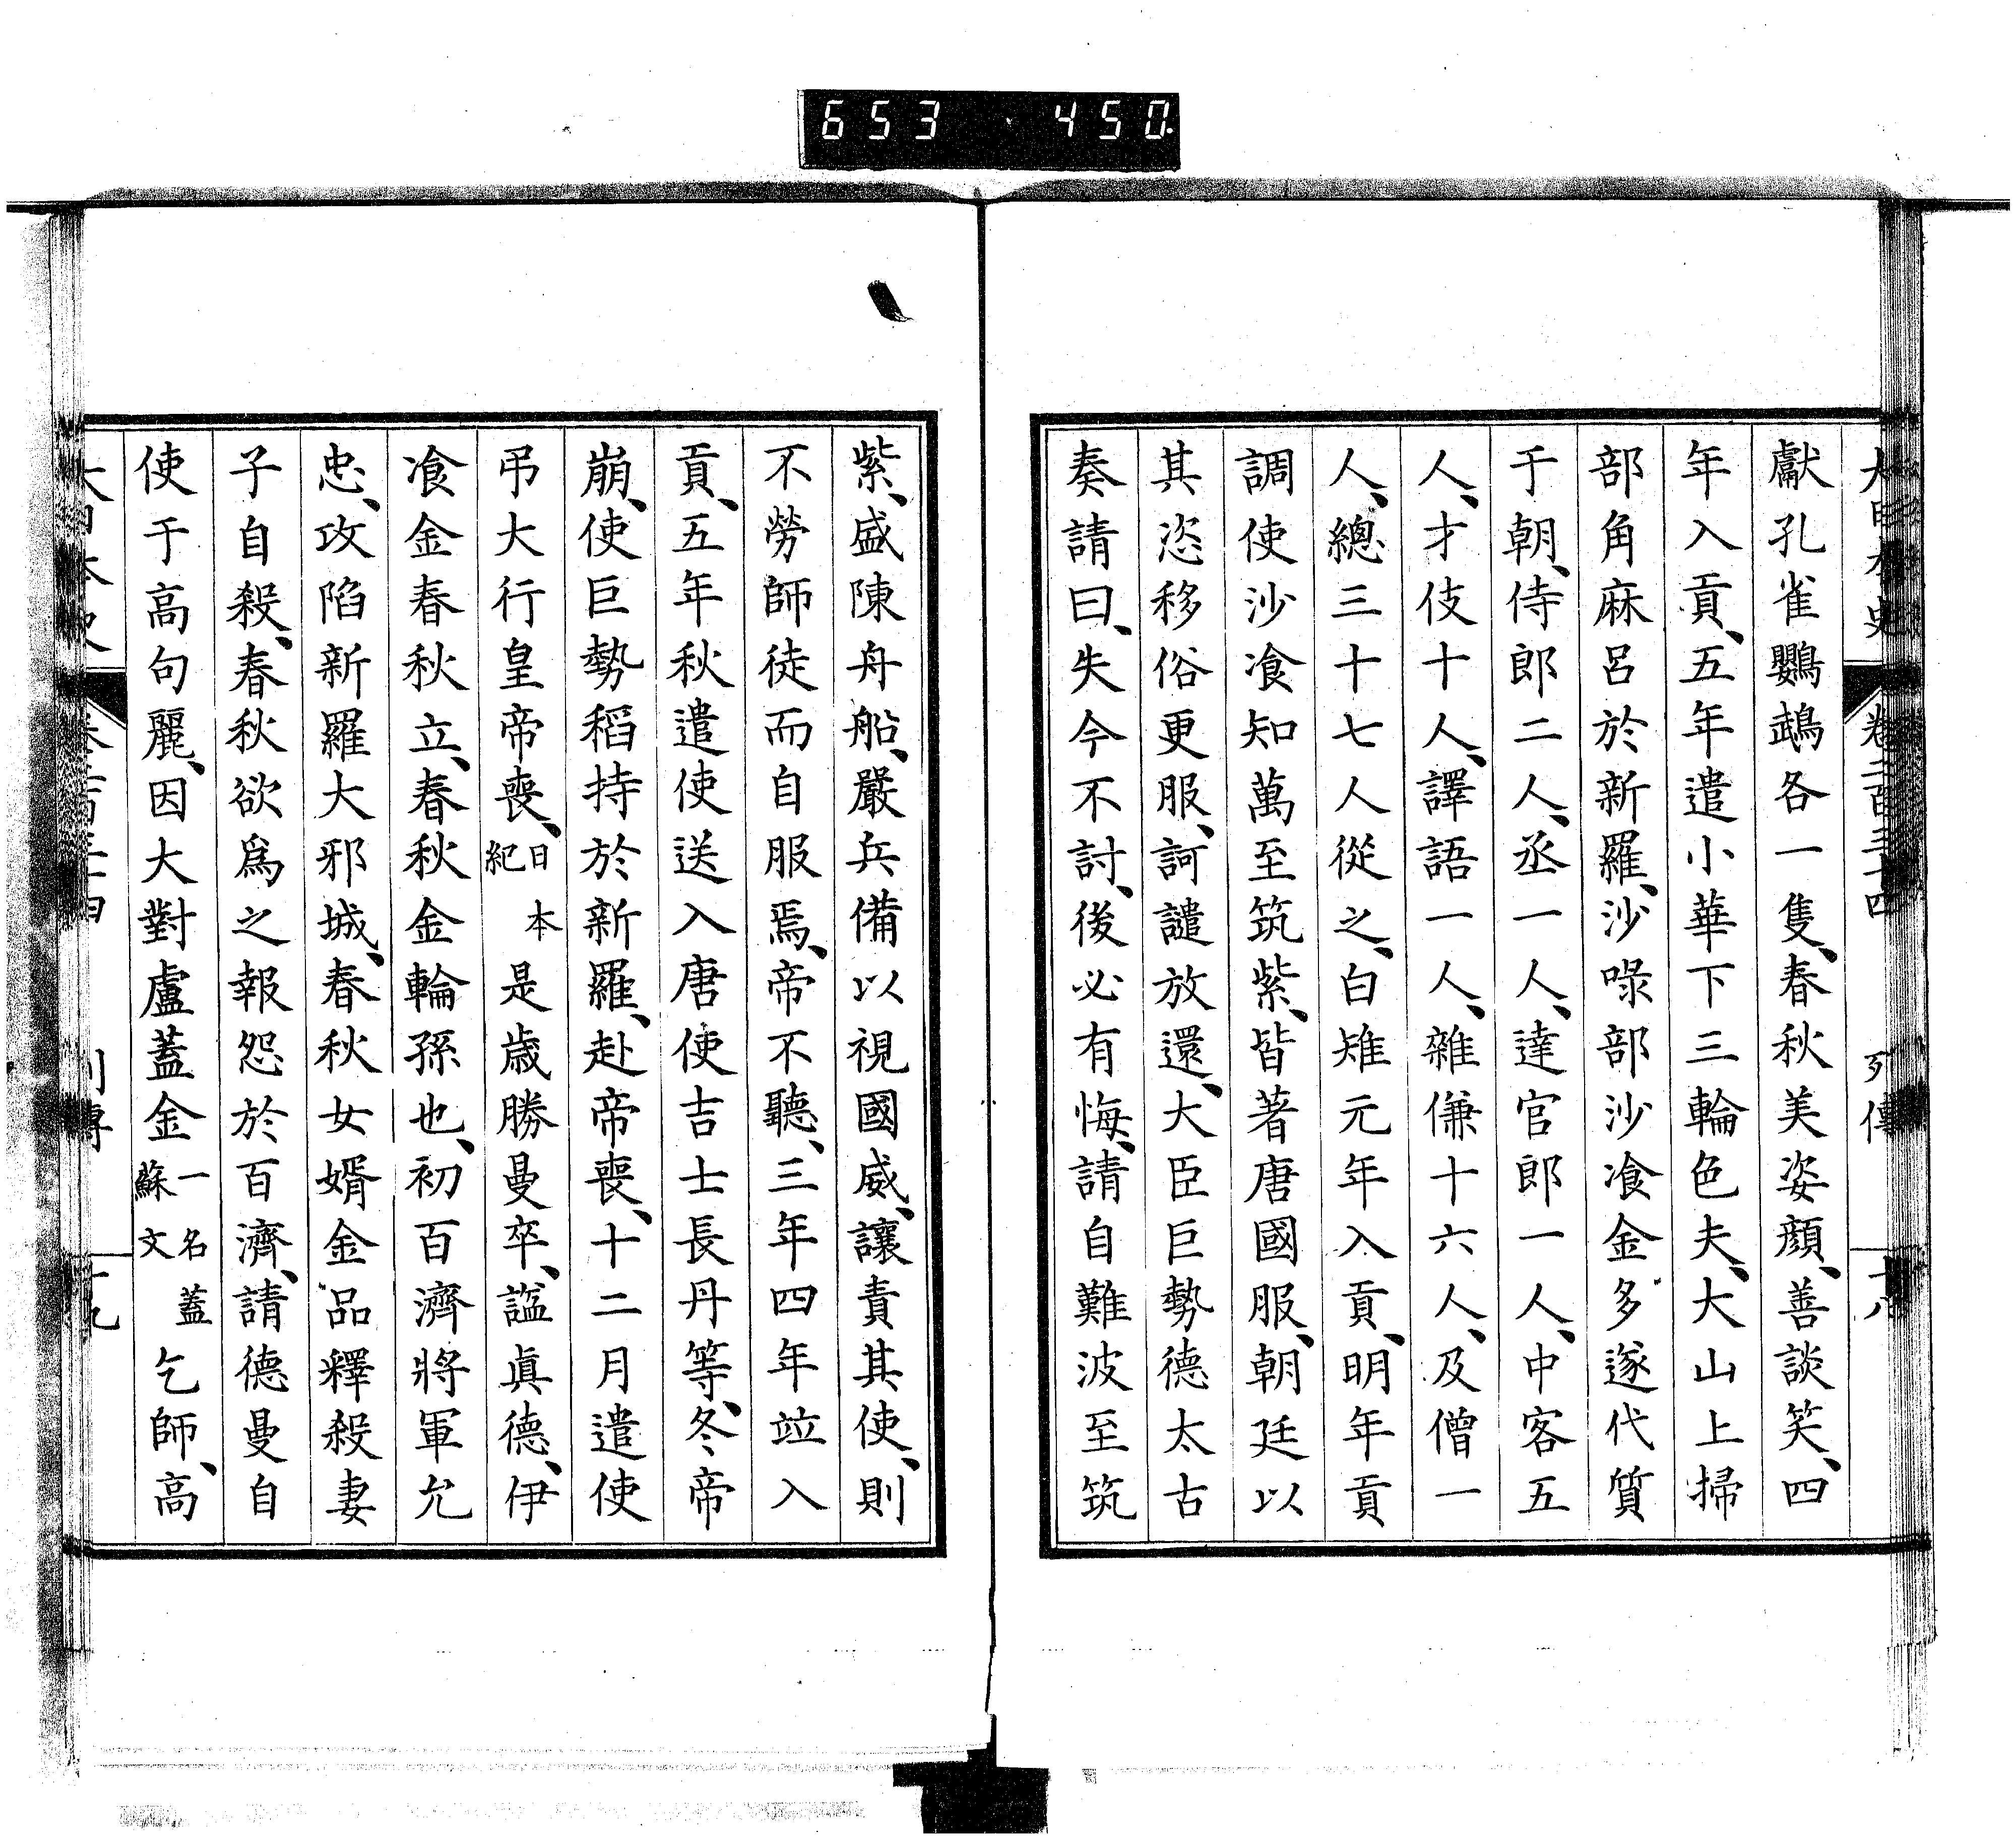 653 450
大日本史 卷二百三十四 列傳 十八
獻孔雀鸚鵡各一隻、春秋美姿顔、善談笑、四
年入貢、五年遣小華下三輪色夫、大山上掃
部角麻呂於新羅、沙㖨部沙飡金多遂代質
于朝、侍郎二人、丞一人、達官郎一人、中客五
人、才伎十人、譯語一人、雜傔十六人、及僧一
人、總三十七人從之、白雉元年入貢、明年貢
調使沙飡知萬至筑紫、皆著唐國服、朝廷以
其恣移俗更服、訶譴放還、大臣巨勢德太古
奏請曰、失今不討、後必有悔、請自難波至筑
紫、盛陳舟船、嚴兵備以視國威、讓責其使、則
不勞師徒而自服焉、帝不聽、三年四年竝入
貢、五年秋遣使送入唐使吉士長丹等、冬帝
崩、使巨勢稻持於新羅、赴帝喪、十二月遣使
弔大行皇帝喪、日本紀是歲勝曼卒、謚眞德、伊
飡金春秋立、春秋金輪孫也、初百濟將軍允
忠、攻陷新羅大邪城、春秋女婿金品釋殺妻
子自殺、春秋欲爲之報怨於百濟、請德曼自
使于高句麗、因大對盧蓋金一名蓋蘇文乞師、高